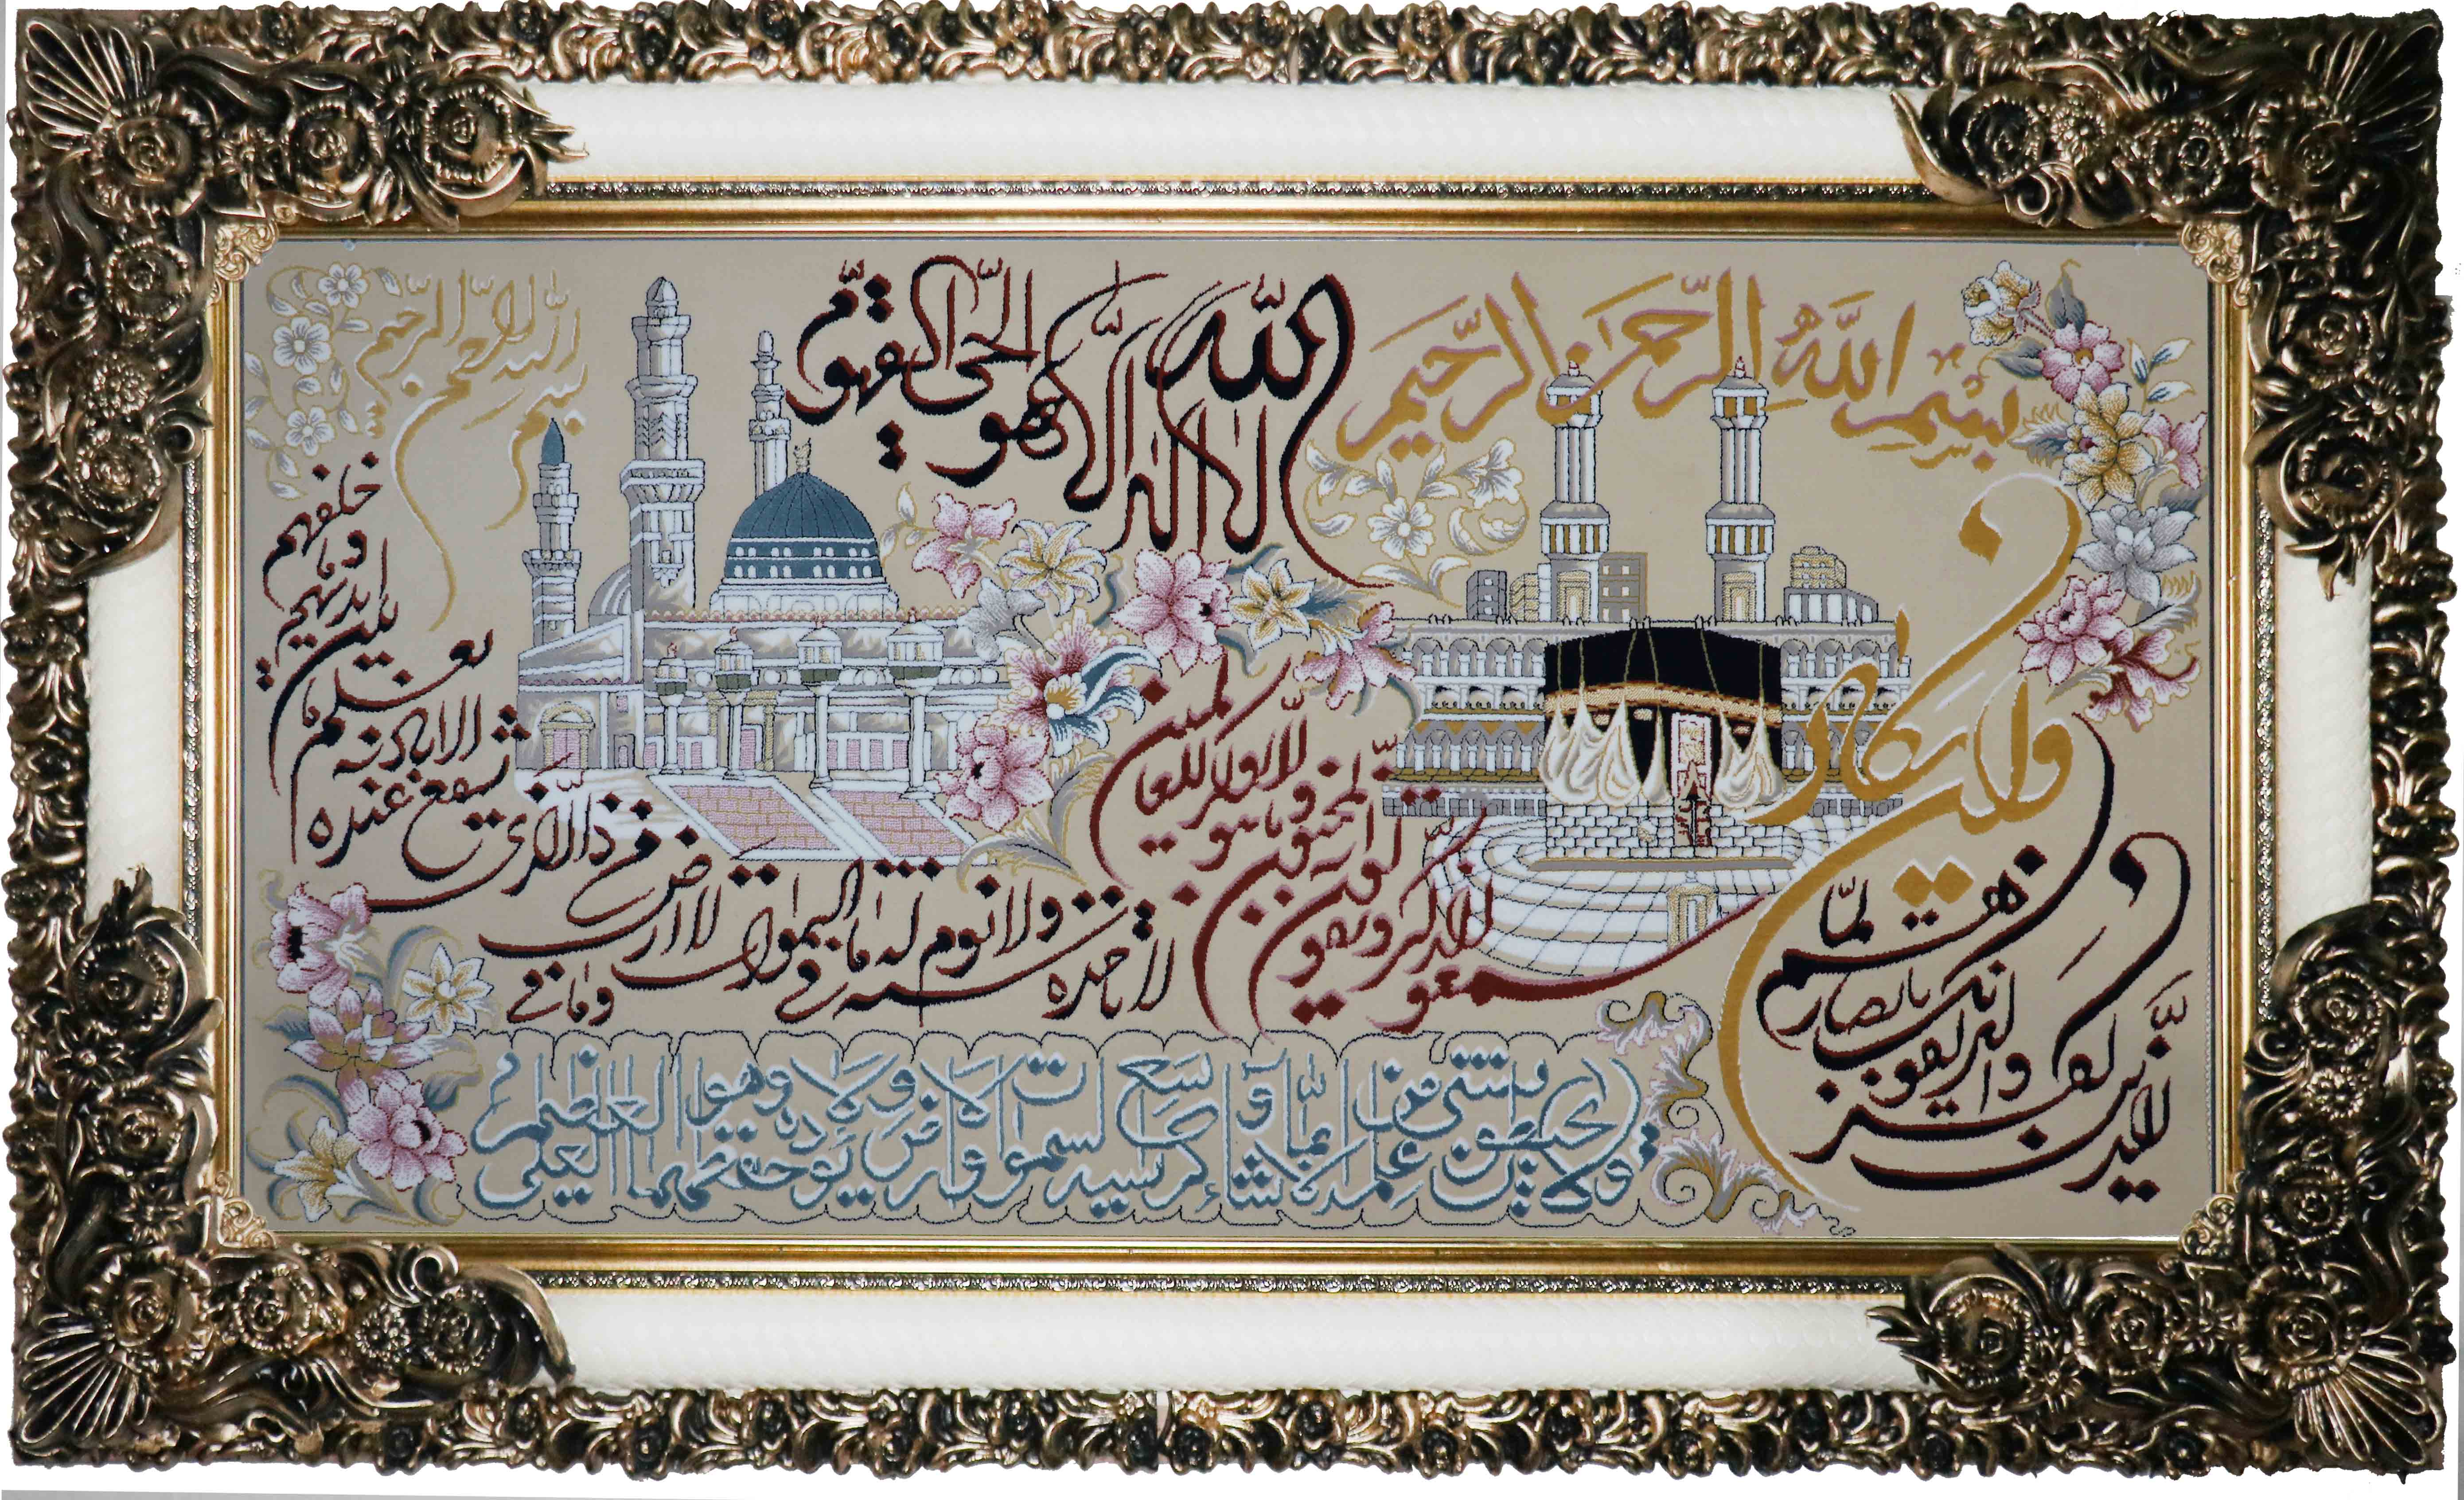 بِسْمِ اللَّهِ الرَّحْمَنِ الرَّحِيمِ
وان يكاد
الذين كفروا
ليزلقونك بابصارهم لما
سمعوا
الذكر ويقولون
انه لمجنون
وما هو الا ذكر للعالمين
بسم الله الرحمن الرحيم
الله لا اله الا هو الحي القيوم
لا تاخذه سنة ولا نوم له ما في السموات وما في الارض
من ذا الذي يشفع عنده
الا باذنه
يعلم ما
بين ايديهم
وما خلفهم
ولا يحيطون بشيء من علمه الا بما شاء وسع كرسيه السموات والارض ولا يؤده حفظهما وهو العلي العظيم